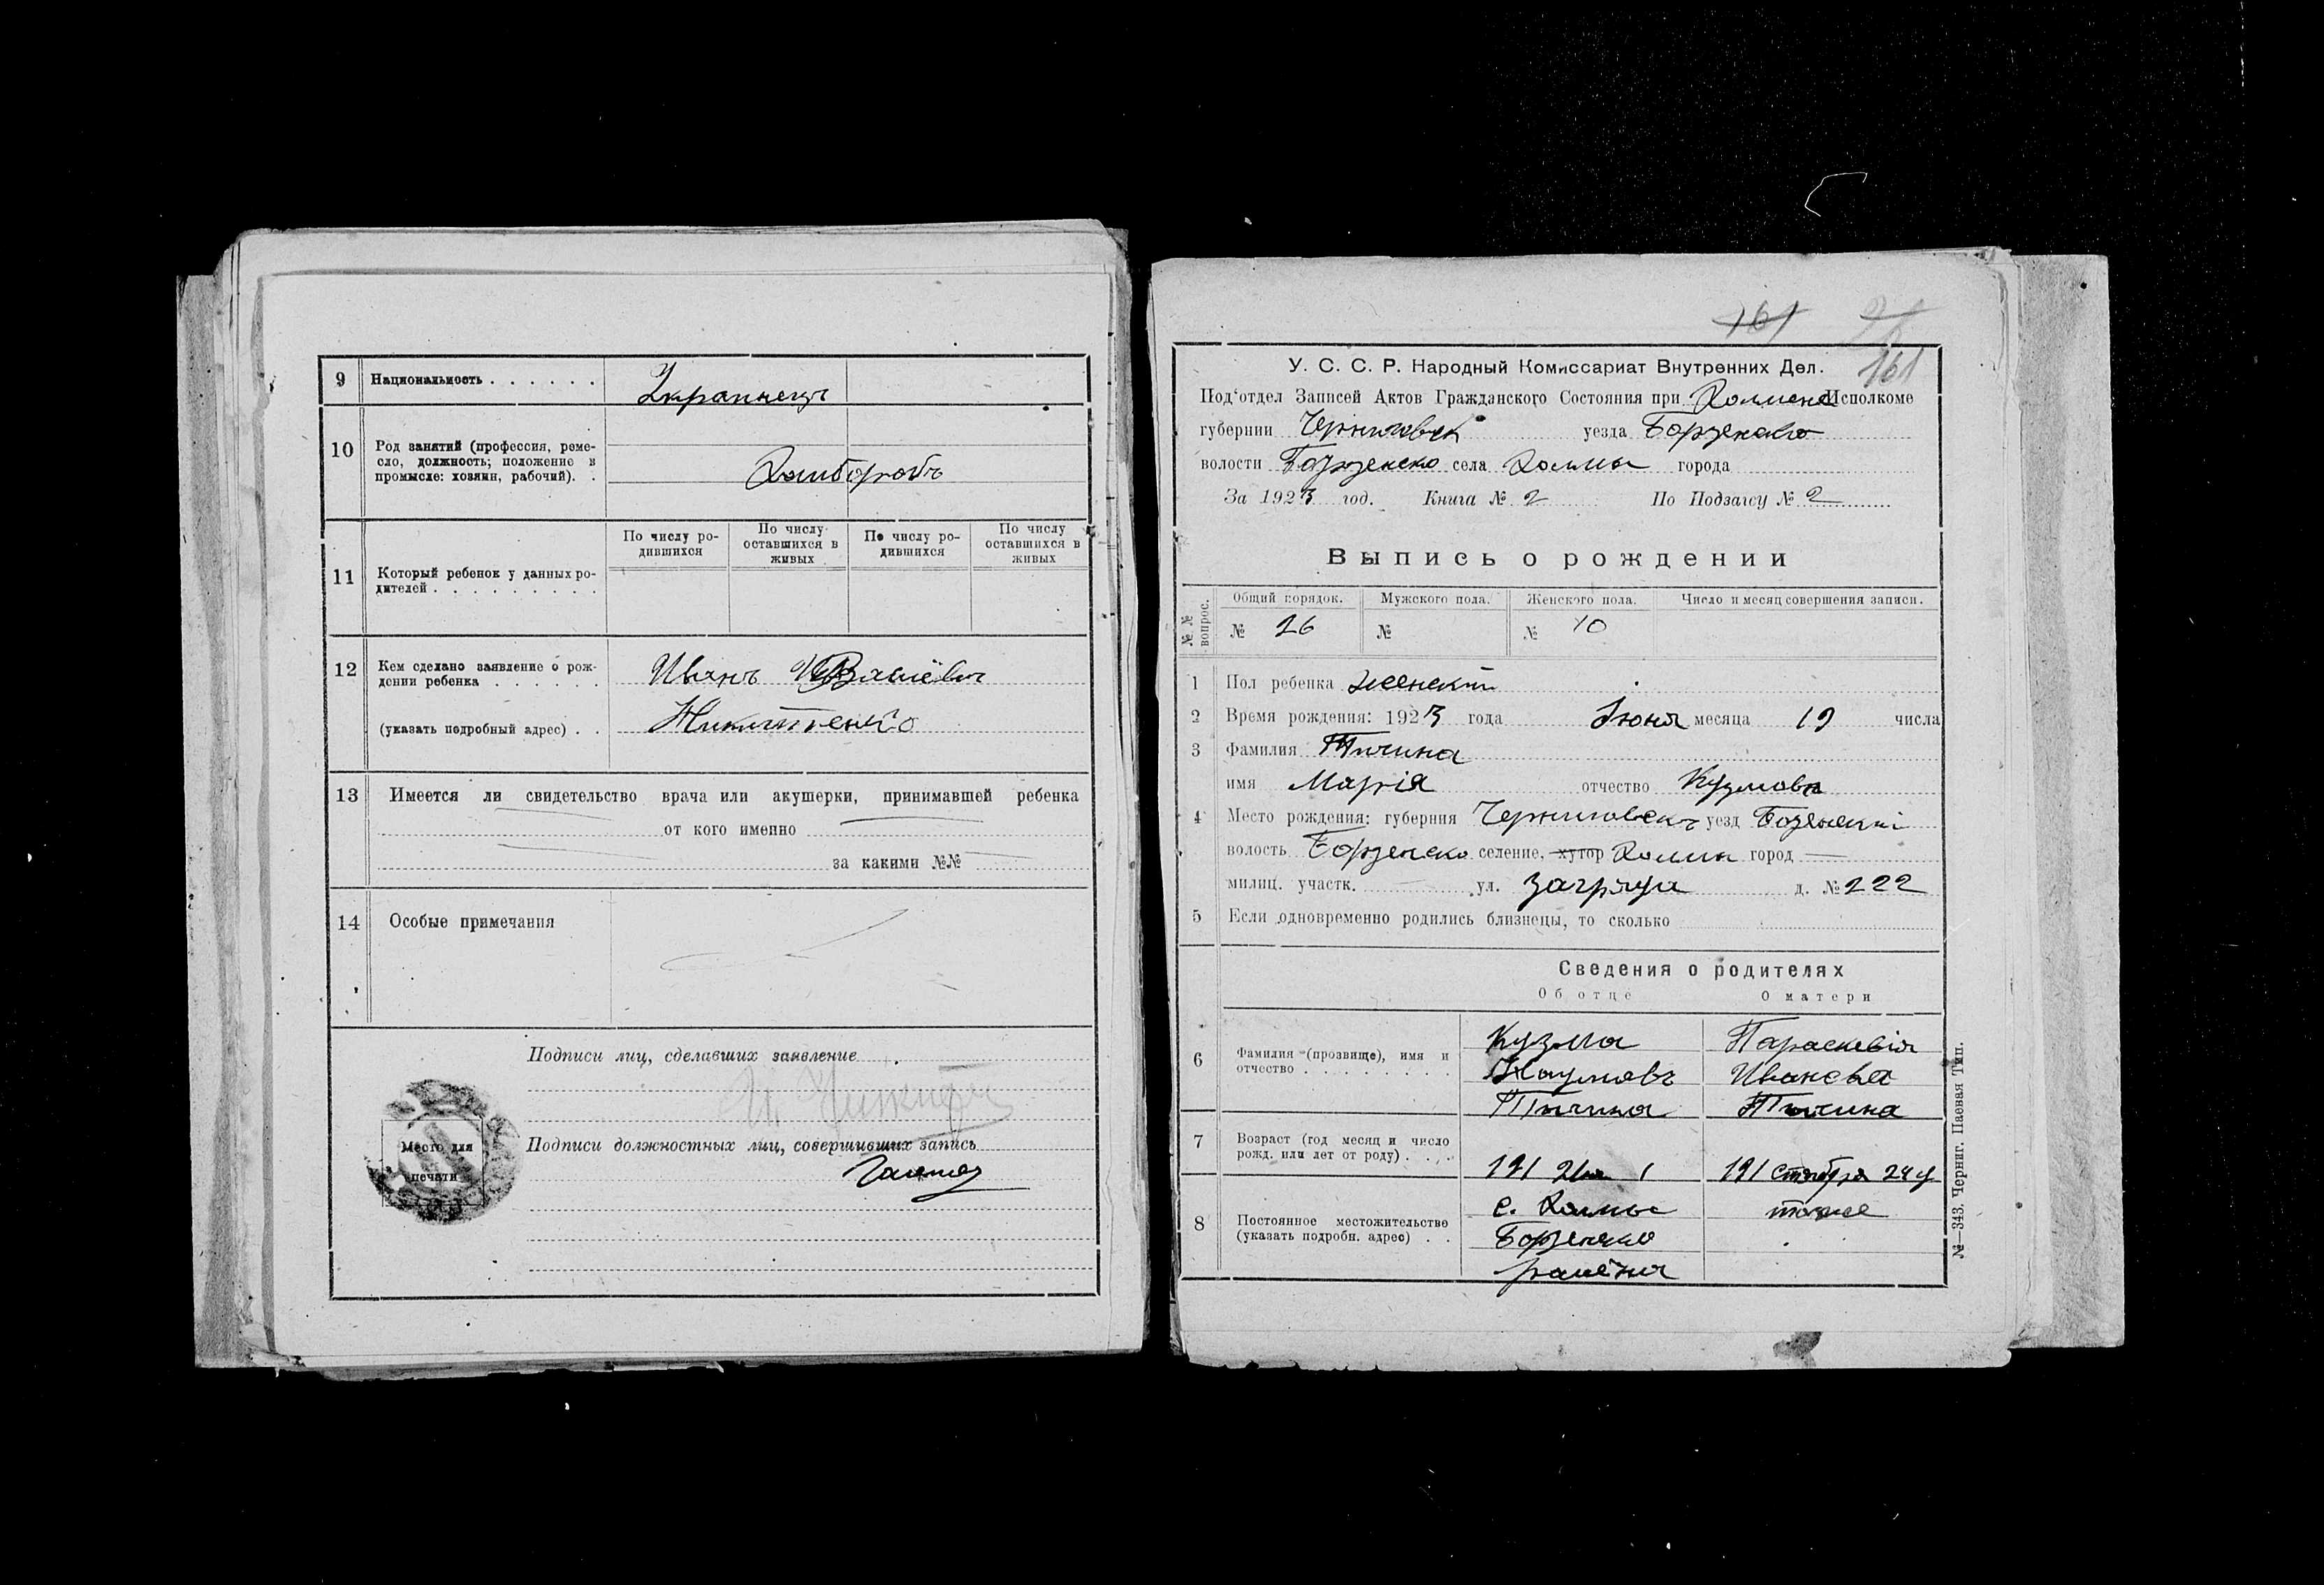 9 Национальность . . . . . . Украинець
10 Род занятий (профессия, реме-
сло, должность; положение в
промысле: хозяин, рабочий). . Хлиборобъ
По числу ро-
дившихся
По числу
оставшихся в
живых
По числу ро-
дившихся
По числу
оставшихся в
живых
11 Который ребенок у данных ро-
дителей . . . . . . . . .
12 Кем сделано заявление о рож-
дении ребенка . . . . . . Иванъ
(указать подробный адрес) . . Никитченко
13 Имеется ли свидетельство врача или акушерки, принимавшей ребенка
от кого именно
за какими №№
14 Особые примечания
Подписи лиц, сделавших заявление
Подписи должностных лиц, совершивших запись
Место для
печати
161
161
У. С. С. Р. Народный Комиссариат Внутренних Дел.
Под'отдел Записей Актов Гражданского Состояния при Исполкоме
губернии уезда Борзенского
волости Борзенско села Холмы города
За 1923 год. Книга № 2 По Подзагсу № 2
Выпись о рождении
№ № вопрос.
Общий порядок. Мужского пола. Женского пола. Число и месяц совершения записи.
№ 26 № № 10
1 Пол ребенка женский
2 Время рождения: 1923 года Июня месяца 19 числа
3 Фамилия Тичина
имя Марія отчество Кузмовна
4 Место рождения: губерния уезд
волость Борзенско селение, хутор Холми город
милиц. участк. ул. д. № 222
5 Если одновременно родились близнецы, то сколько
Сведения о родителях
Об отце О матери
6 Фамилия (прозвище), имя и
отчество . . . . . . . . .
Кузма Параскевія
Наумовъ Иванова
Тичина Тичина
7 Возраст (год месяц и число
рожд. или лет от роду) . . . .
8 Постоянное местожительство
(указать подробн. адрес) . .
с. Холмы тоже
Борзенско
раиёна
№—343. Черниг. Паевая Тип.